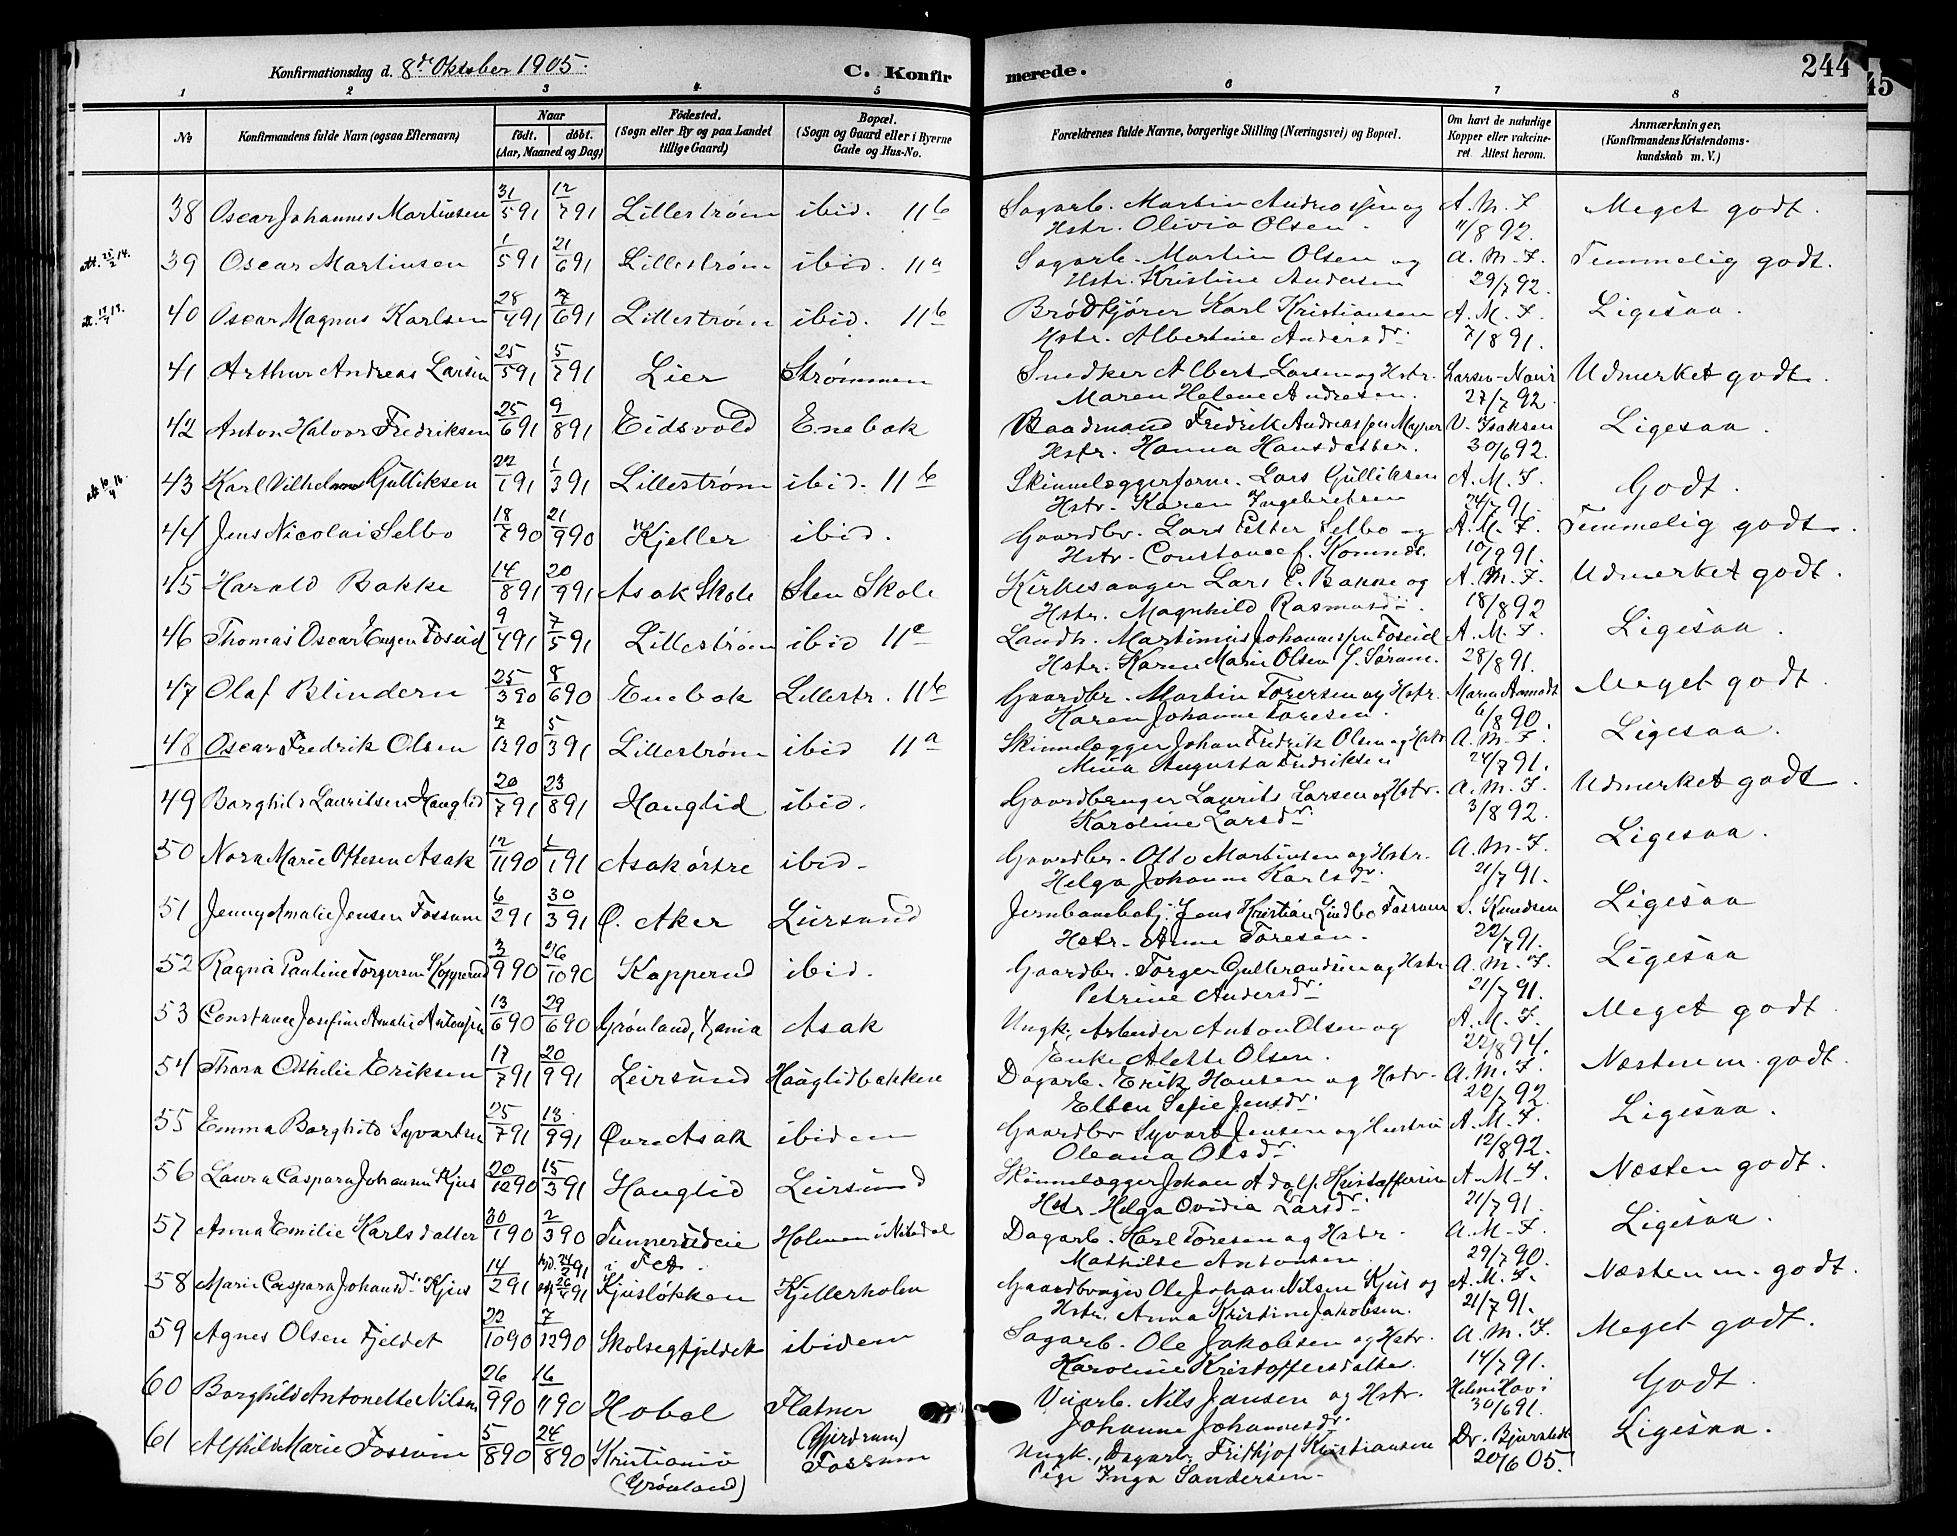 Konfirmationsdag d. 8de Oktober 1905.
C. Konfirmerede.
244
45
1 2 3 4 5 6 7 8
No Konfirmandens fulde Navn (ogsaa Efternavn) Naar født. døbt. (Aar, Maaned og Dag) Födested. (Sogn eller By og paa Landet tillige Gaard) Bopæl. (Sogn og Gaard eller i Byerne Gade og Hus-No. Forældrenes fulde Navne, borgerlige Stilling (Næringsvei) og Bopæl. Om havt de naturlige Kopper eller vakcineret Attest herom. Anmærkninger, (Konfirmandens Kristendomskundskab m. V.)
38 Oscar Johannes Martinsen 31/5 91 12/7 91 Lillestrøm ibid. 11b Sagarb. Martin Andreassen og Hstr. Olivia Olsen. A. M. F. 11/8 92. Meget godt.
39 Oscar Martinsen 1/5 91 21/6 91 Lillestrøm ibid. 11a Sagarb. Martin Olsen og Hstr. Kristine Andersen A. M. F. 29/7 92. Temmelig godt.
40 Oscar Magnus Karlsen 28/4 91 7/6 91 Lillestrøm ibid. 11b Brødkjører Karl Kristiansen Hstr. Albertine Andersdr A. M. F. 7/8 91. Ligesaa.
41 Arthur Andreas Larsen 25/5 91 5/7 91 Lier Strømmen Snedker Albert Larsen og Hstr. Maren Helene Andresen. Larsen-Næss 27/7 92. Udmerket godt.
42 Anton Halvor Fredriksen 25/6 91 9/8 91 Eidsvold Enebak Baadmand Fredrik Andreassen Hstr. Hanna Hansdatter. V. Isaksen 30/6 92. Ligesaa.
43 Karl Vilhelm Gulliksen 22/1 91 1/3 91 Lillestrøm ibid. 11b Skinnelæggerform. Lars Gulliksen Hstr. Karen Ingebretsen A. M. F. 24/7 91. Godt.
44 Jens Nicolai Selbo 18/7 90 21/9 90 Kjeller ibid. Gaardbr. Lars Petter Selbo og Hstr. Constance f. A. M. F. 10/9 91. Temmelig godt.
45 Harald Bakke 14/8 91 20/9 91 Asak Skole Sten Skole Kirkesanger Lars E. Bakke og Hstr. Magnhild Rasmusdr. A. M. F. 18/8 92 Udmerket godt.
46 Thomas Oscar Eugen Foseid 9/4 91 7/5 91 Lillestrøm ibid 11c Landh. Martinius Johannessen Foseid Hstr. Karen Marie Olsen f. Sørum. A. M. F. 28/8 91. Ligesaa.
47 Olaf Blindern 25/3 90 8/6 90 Enebak Lillestr. 11b Gaardbr. Martin Toresen og Hstr. Karen Johanne Toresen. Maren Aamodt 6/8 90. Meget godt.
48 Oscar Fredrik Olsen 7/12 90 5/3 91 Lillestrøm ibid 11a Skinnelægger Johan Fredrik Olsen og Hstr. Mina Augusta Fredriksen A. M. F. 24/7 91. Ligesaa.
49 Borghild Lauritsen Hauglid 20/7 91 23/8 91 Hauglid ibid. Gaardbruger Laurits Larsen og Hstr. Karoline Larsdr A. M. F. 3/8 92. Udmerket godt.
50 Nora Marie Ottesen Asak 12/11 90 1/1 91 Asak østre ibid. Gaardbr. Otto Martinsen og Hstr. Helga Johanne Karlsdr A. M. F. 21/7 91. Ligesaa.
51 Jenny Amalie Jensen Fossum 6/2 91 30/3 91 Ø. Aker Leirsund Jernbanebetj. Jens Kristian Lindbo Fossum Hstr. Anne Toresen. S. Knudsen 22/7 91. Ligesaa
52 Ragna Pauline Torgersen Kopperud 3/9 90 26/10 90 Kopperud ibid. Gaardbr. Torger Gulbrandsen og Hstr. Petrine Andersdr A. M. F. 21/7 91. Ligesaa
53 Constance Josefine Amalie Antonsen 13/6 90 29/6 90 Grønland, Xania Asak Ungk., Arbeider Anton Olsen og Enke Alette Olsen. A. M. F. 22/8 94. Meget godt.
54 Thora Othilie Eriksen 17/7 91 20/9 91 Leirsund Hauglidbakken Dagarb. Erik Hansen og Hstr. Ellen Sofie Jensdr A. M. F. 22/7 92. Næsten m. godt.
55 Emma Borghild Syvartsen 25/7 91 13/9 91 Øvre Asak ibidem Gaardbr Syvart Jensen og Hustru Oleana Olsdr A. M. F. 12/8 92. Ligesaa.
56 Laura Caspara Johansen Kjus 20/12 90 15/3 91 Hauglid Leirsund Skinnelægger Johan Adolf Kristoffersen Hstr. Helga Ovidia Larsdr A. M. F. 21/7 91. Næsten godt.
57 Anna Emilie Karlsdatter 30/1 90 2/3 90 Tunnerudeie i Fet. Holmen i Nitedal Dagarb. Karl Toresen og Hstr. Mathilde Antonsen A. M. F. 29/7 90. Ligesaa.
58 Marie Caspara Johansdr Kjus 14/2 91 Kjusløkken Kjellerholen Gaardbruger Ole Johan Nilsen Kjus og Hstr. Anna Kristine Jakobsen. A. M. F. 21/7 91. Næsten m. godt.
59 Agnes Olsen Fjeldet 22/10 90 7/12 90 Skolsegfjeldet ibidem Sagarb. Ole Jakobsen og Hstr. Karoline Kristoffersdatter. A. M. F. 14/7 91. Meget godt.
60 Borghild Antonette Nilsen 26/9 90 16/11 90 Hobøl Flatner (Gjerdrum) Veiarb. Nils Jansen og Hstr. Johanne Johannesdr 30/6 91. Godt.
61 Alfhild Marie Fossum 5/8 90 24/8 90 Kristiania (Grønland) Fossum Ungk., Dagarb. Frithjof Kristiansen Pige Inga Sandersen. Dr. 20/6 05. Ligesaa.